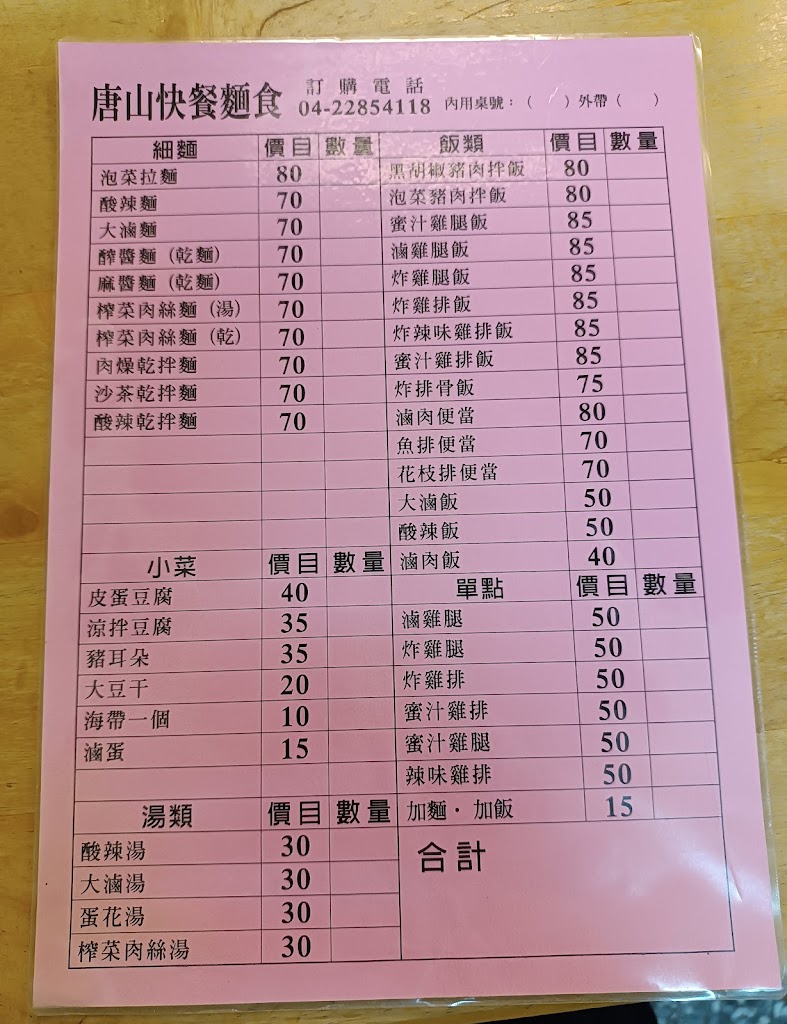 唐山快餐麵食
訂購電話
04-22854118 內用桌號：（ ）外帶（ ）
細麵 價目 數量
泡菜拉麵 80
酸辣麵 70
大滷麵 70
醡醬麵（乾麵） 70
麻醬麵（乾麵） 70
榨菜肉絲麵（湯） 70
榨菜肉絲麵（乾） 70
肉燥乾拌麵 70
沙茶乾拌麵 70
酸辣乾拌麵 70
小菜 價目 數量
皮蛋豆腐 40
涼拌豆腐 35
豬耳朵 35
大豆干 20
海帶一個 10
滷蛋 15
湯類 價目 數量
酸辣湯 30
大滷湯 30
蛋花湯 30
榨菜肉絲湯 30
飯類 價目 數量
黑胡椒豬肉拌飯 80
泡菜豬肉拌飯 80
蜜汁雞腿飯 85
滷雞腿飯 85
炸雞腿飯 85
炸雞排飯 85
炸辣味雞排飯 85
蜜汁雞排飯 85
炸排骨飯 75
滷肉便當 80
魚排便當 70
花枝排便當 70
大滷飯 50
酸辣飯 50
滷肉飯 40
單點 價目 數量
滷雞腿 50
炸雞腿 50
炸雞排 50
蜜汁雞排 50
蜜汁雞腿 50
辣味雞排 50
加麵・加飯 15
合計